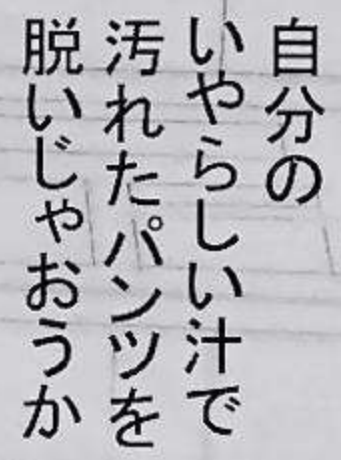 自分の
いやらしい汁で
汚れたパンツを
脱いじゃおうか